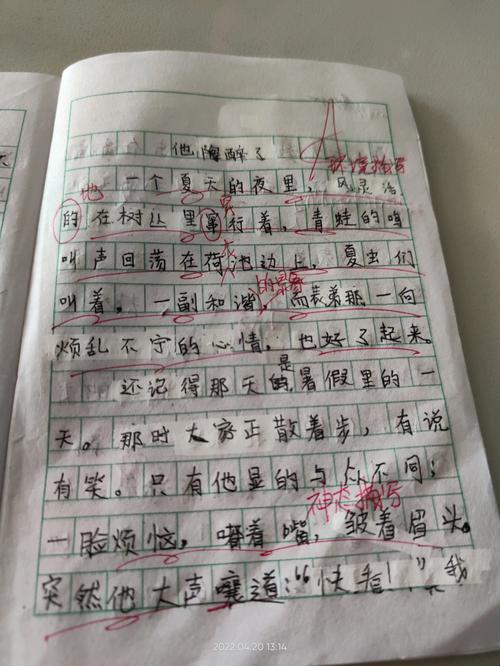 他陶醉了
环境描写
一个夏天的夜里，风灵活
地
的在树丛里穿行着，青蛙的鸣
叫声回荡在荷池边上，夏虫们
的景象
叫着。一副和谐，而表弟那一向
烦乱不宁的心情，也好了起来。
是
还记得那天的暑假里的一
天。那时大家正散着步，有说
有笑。只有他显的与众不同：
神态描写
一脸烦恼，嘟着嘴，皱着眉头。
突然他大声嚷道：“快看！”我
2022.04.20 13:14